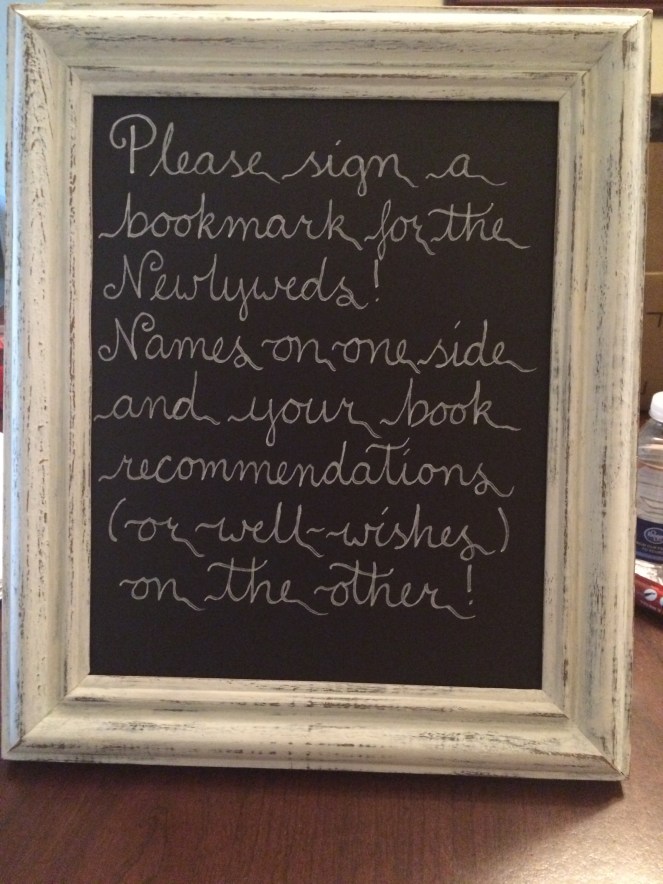 Please sign a
bookmark for the
Newlyweds!
Names on one side
and your book
recommendations
(or well-wishes)
on the other!